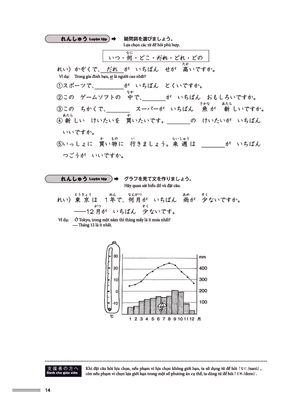 れんしゅう Luyện tập 疑問詞を選びましょう。
Lựa chọn các từ để hỏi phù hợp.
いつ・何・どこ・だれ・どれ・どの
れい）かぞくで、 だれ が いちばん せが 高いですか。
Ví dụ: Trong gia đình bạn, ai là người cao nhất?
①スポーツで、 が いちばん とくいですか。
②この ゲームソフトの 中で、 が いちばん おもしろいですか。
③この ちかくで、 スーパーが いちばん 魚が 新しいですか。
④新しい けいたいを 買いたいです。 の けいたいが いちばん
いいですか。
⑤いっしょに 買い物に 行きましょう。来週は が いちばん
つごうが いいですか。
れんしゅう Luyện tập グラフを見て文を作りましょう。
Hãy quan sát biểu đồ và đặt câu.
れい）東京は 1年で、何月が いちばん 雨が 少ないですか。
――12月が いちばん 少ないです。
Ví dụ: Ở Tokyo, trong một năm thì tháng mấy là ít mưa nhất?
— Tháng 12 là ít nhất.
mm
400
300
200
100
30
20
10
0
-10
℃
1 2 3 4 5 6 7 8 9 10 11 12 月
支援者の方へ
Dành cho giáo viên
Khi đặt câu hỏi lựa chọn, nếu phạm vi lựa chọn không giới hạn, ta sử dụng từ để hỏi
còn nếu phạm vi chọn lựa giới hạn trong một số phương án cụ thể, ta dùng từ để hỏi
14